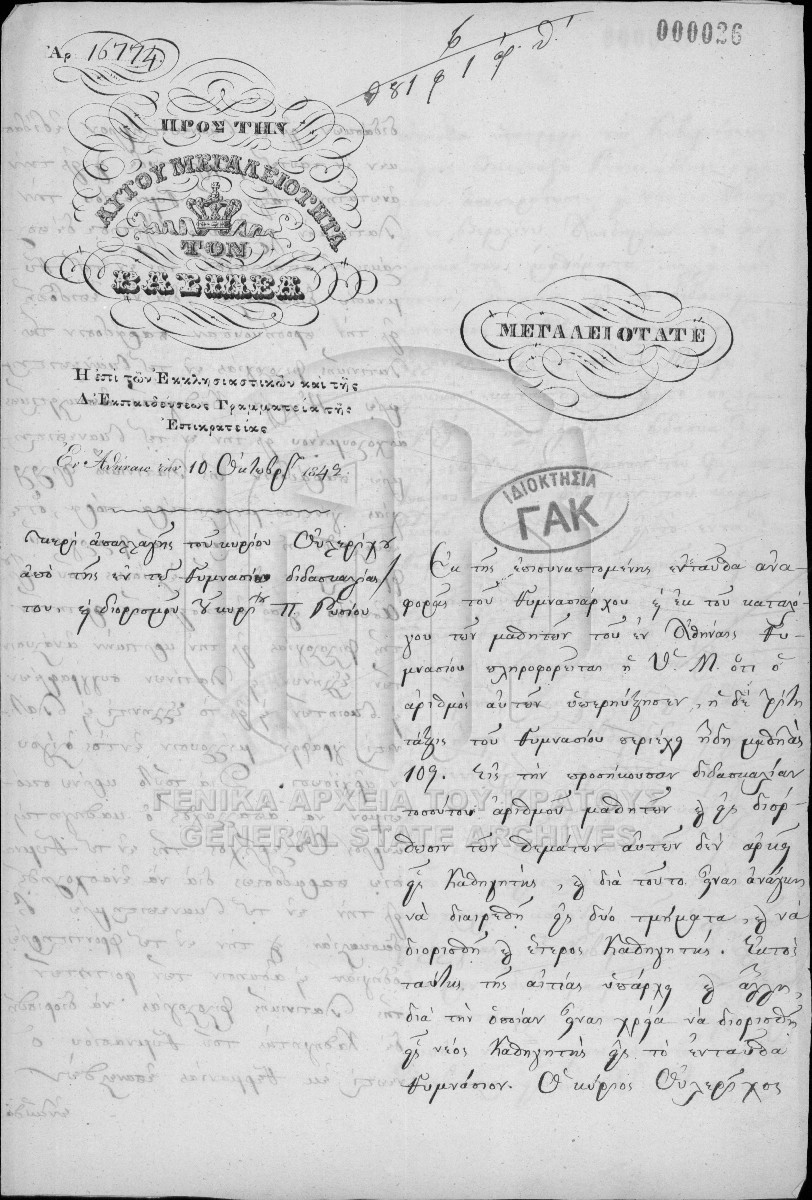 Ἀρ. 16774.
000026
ΠΡΟΣ ΤΗΝ
ΑΥΤΟΥ ΜΕΓΑΛΕΙΟΤΗΤΑ
ΤΟΝ
ΒΑΣΙΛΕΑ
ΜΕΓΑΛΕΙΟΤΑΤΕ
Η ἐπὶ τῶν Ἐκκλησιαστικῶν καὶ τῆς
Δ. Ἐκπαιδεύσεως Γραμματεία τῆς
Ἐπικρατείας
Ἐν Ἀθήναις τὴν 10 Ὀκτωβρ. 1842
ΙΔΙΟΚΤΗΣΙΑ
ΓΑΚ
Περὶ ἀπαλλαγῆς τοῦ κυρίου Οὐλερίχου
ἀπὸ τῆς ἐν τῷ Γυμνασίῳ διδασκαλίας
του καὶ διορισμοῦ τοῦ κυρίου Π.
Ἐκ τῆς ἐπισυναπτομένης ἐνταῦθα ἀνα-
φορᾶς τοῦ Γυμνασιάρχου καὶ ἐκ τοῦ καταλό-
γου τῶν μαθητῶν τοῦ ἐν Ἀθήναις Γυ-
μνασίου πληροφορεῖται ἡ Ὑ. Μ. ὅτι ὁ
ἀριθμὸς αὐτῶν ὑπερηύξησεν, ἡ δὲ τρίτη
τάξις τοῦ Γυμνασίου περιέχει ἤδη μαθητὰς
109. Εἰς τὴν προσήκουσαν διδασκαλίαν
τοσούτου ἀριθμοῦ μαθητῶν καὶ εἰς διόρ-
θωσιν τῶν θεμάτων αὐτῶν δὲν ἀρκεῖ
εἷς Καθηγητής, καὶ διὰ τοῦτο εἶναι ἀνάγκη
νὰ διαιρεθῇ εἰς δύο τμήματα, καὶ νὰ
διορισθῇ καὶ ἕτερος Καθηγητής. Ἐκτὸς
ταύτης τῆς αἰτίας ὑπάρχει καὶ ἄλλη,
διὰ τὴν ὁποίαν εἶναι χρεία νὰ διορισθῇ
εἷς νέος Καθηγητὴς εἰς τὸ ἐνταῦθα
Γυμνάσιον. Ὁ κύριος Οὐλερῖχος
ΓΕΝΙΚΑ ΑΡΧΕΙΑ ΤΟΥ ΚΡΑΤΟΥΣ
GENERAL STATE ARCHIVES